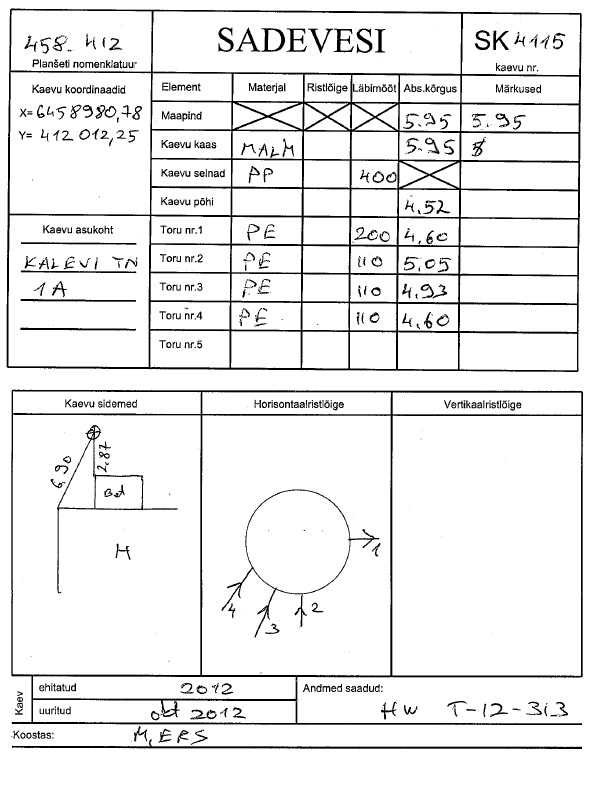 458.412
Planšeti nomenklatuur
SADEVESI
SK 4115
kaevu nr.
Kaevu koordinaadid
X= 6458980,78
Y= 412012,25
Element Materjal Ristlõige Läbimõõt Abs.kõrgus Märkused
Maapind 5.95 5.95
Kaevu kaas MALM 5.95
Kaevu seinad PP 400
Kaevu põhi 4,52
Kaevu asukoht
KALEVI TN
1A
Toru nr.1 PE 200 4,60
Toru nr.2 PE 110 5,05
Toru nr.3 PE 110 4,93
Toru nr.4 PE 110 4,60
Toru nr.5
Kaevu sidemed
Horisontaalristlõige
Vertikaalristlõige
6,90
2,87
H
1
2
3
4
Kaev
ehitatud 2012
uuritud okt 2012
Andmed saadud:
HW T-12-313
Koostas: M, ERS